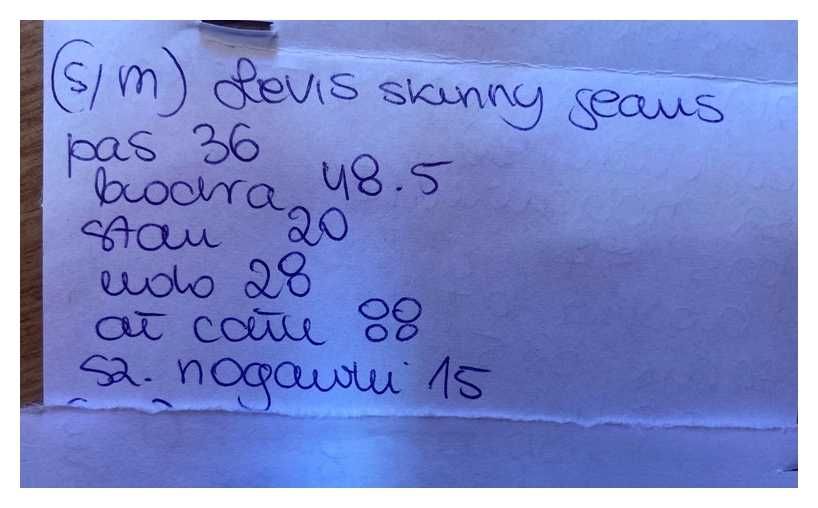 (S/M) Levis skinny jeans
pas 36
biodra 48.5
stan 20
udo 28
dł całk 88
sz. nogawki 15